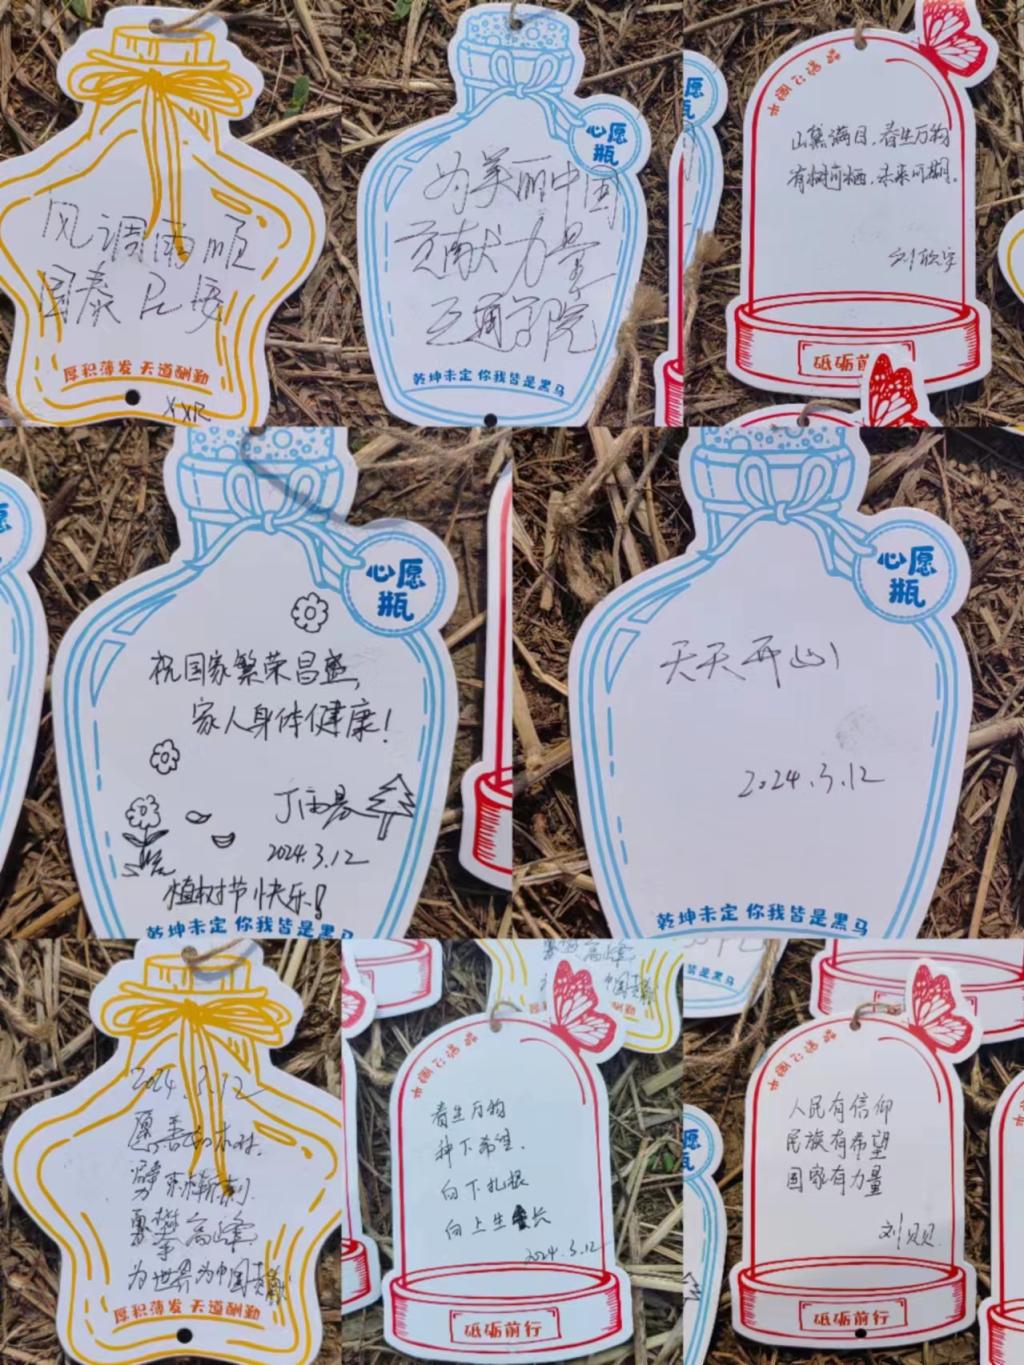 风调雨顺
国泰民安
厚积薄发 天道酬勤
XXR
心愿
瓶
为美丽中国
贡献力量
交通学院
乾坤未定 你我皆是黑马
愿
瓶
山黛满目,春生万物
有树可栖,未来可期。
刘欣宇
砥砺前
心愿
瓶
祝国家繁荣昌盛,
家人身体健康!
2024.3.12
植树节快乐!
乾坤未定 你我皆是黑马
心愿
瓶
天天开心!
2024.3.12
乾坤未定 你我皆是黑马
2024.3.12
勇攀高峰
为世界为中国贡献
厚积薄发 天道酬勤
春生万物
种下希望.
向下扎根
向上生长
2024.3.12
砥砺前行
皆是黑马
人民有信仰
民族有希望
国家有力量
刘贝贝
砥砺前行